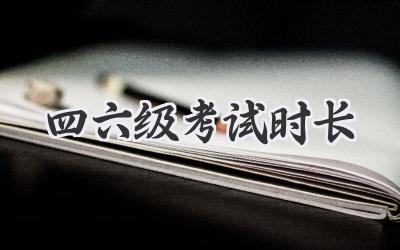 四六级考试时长